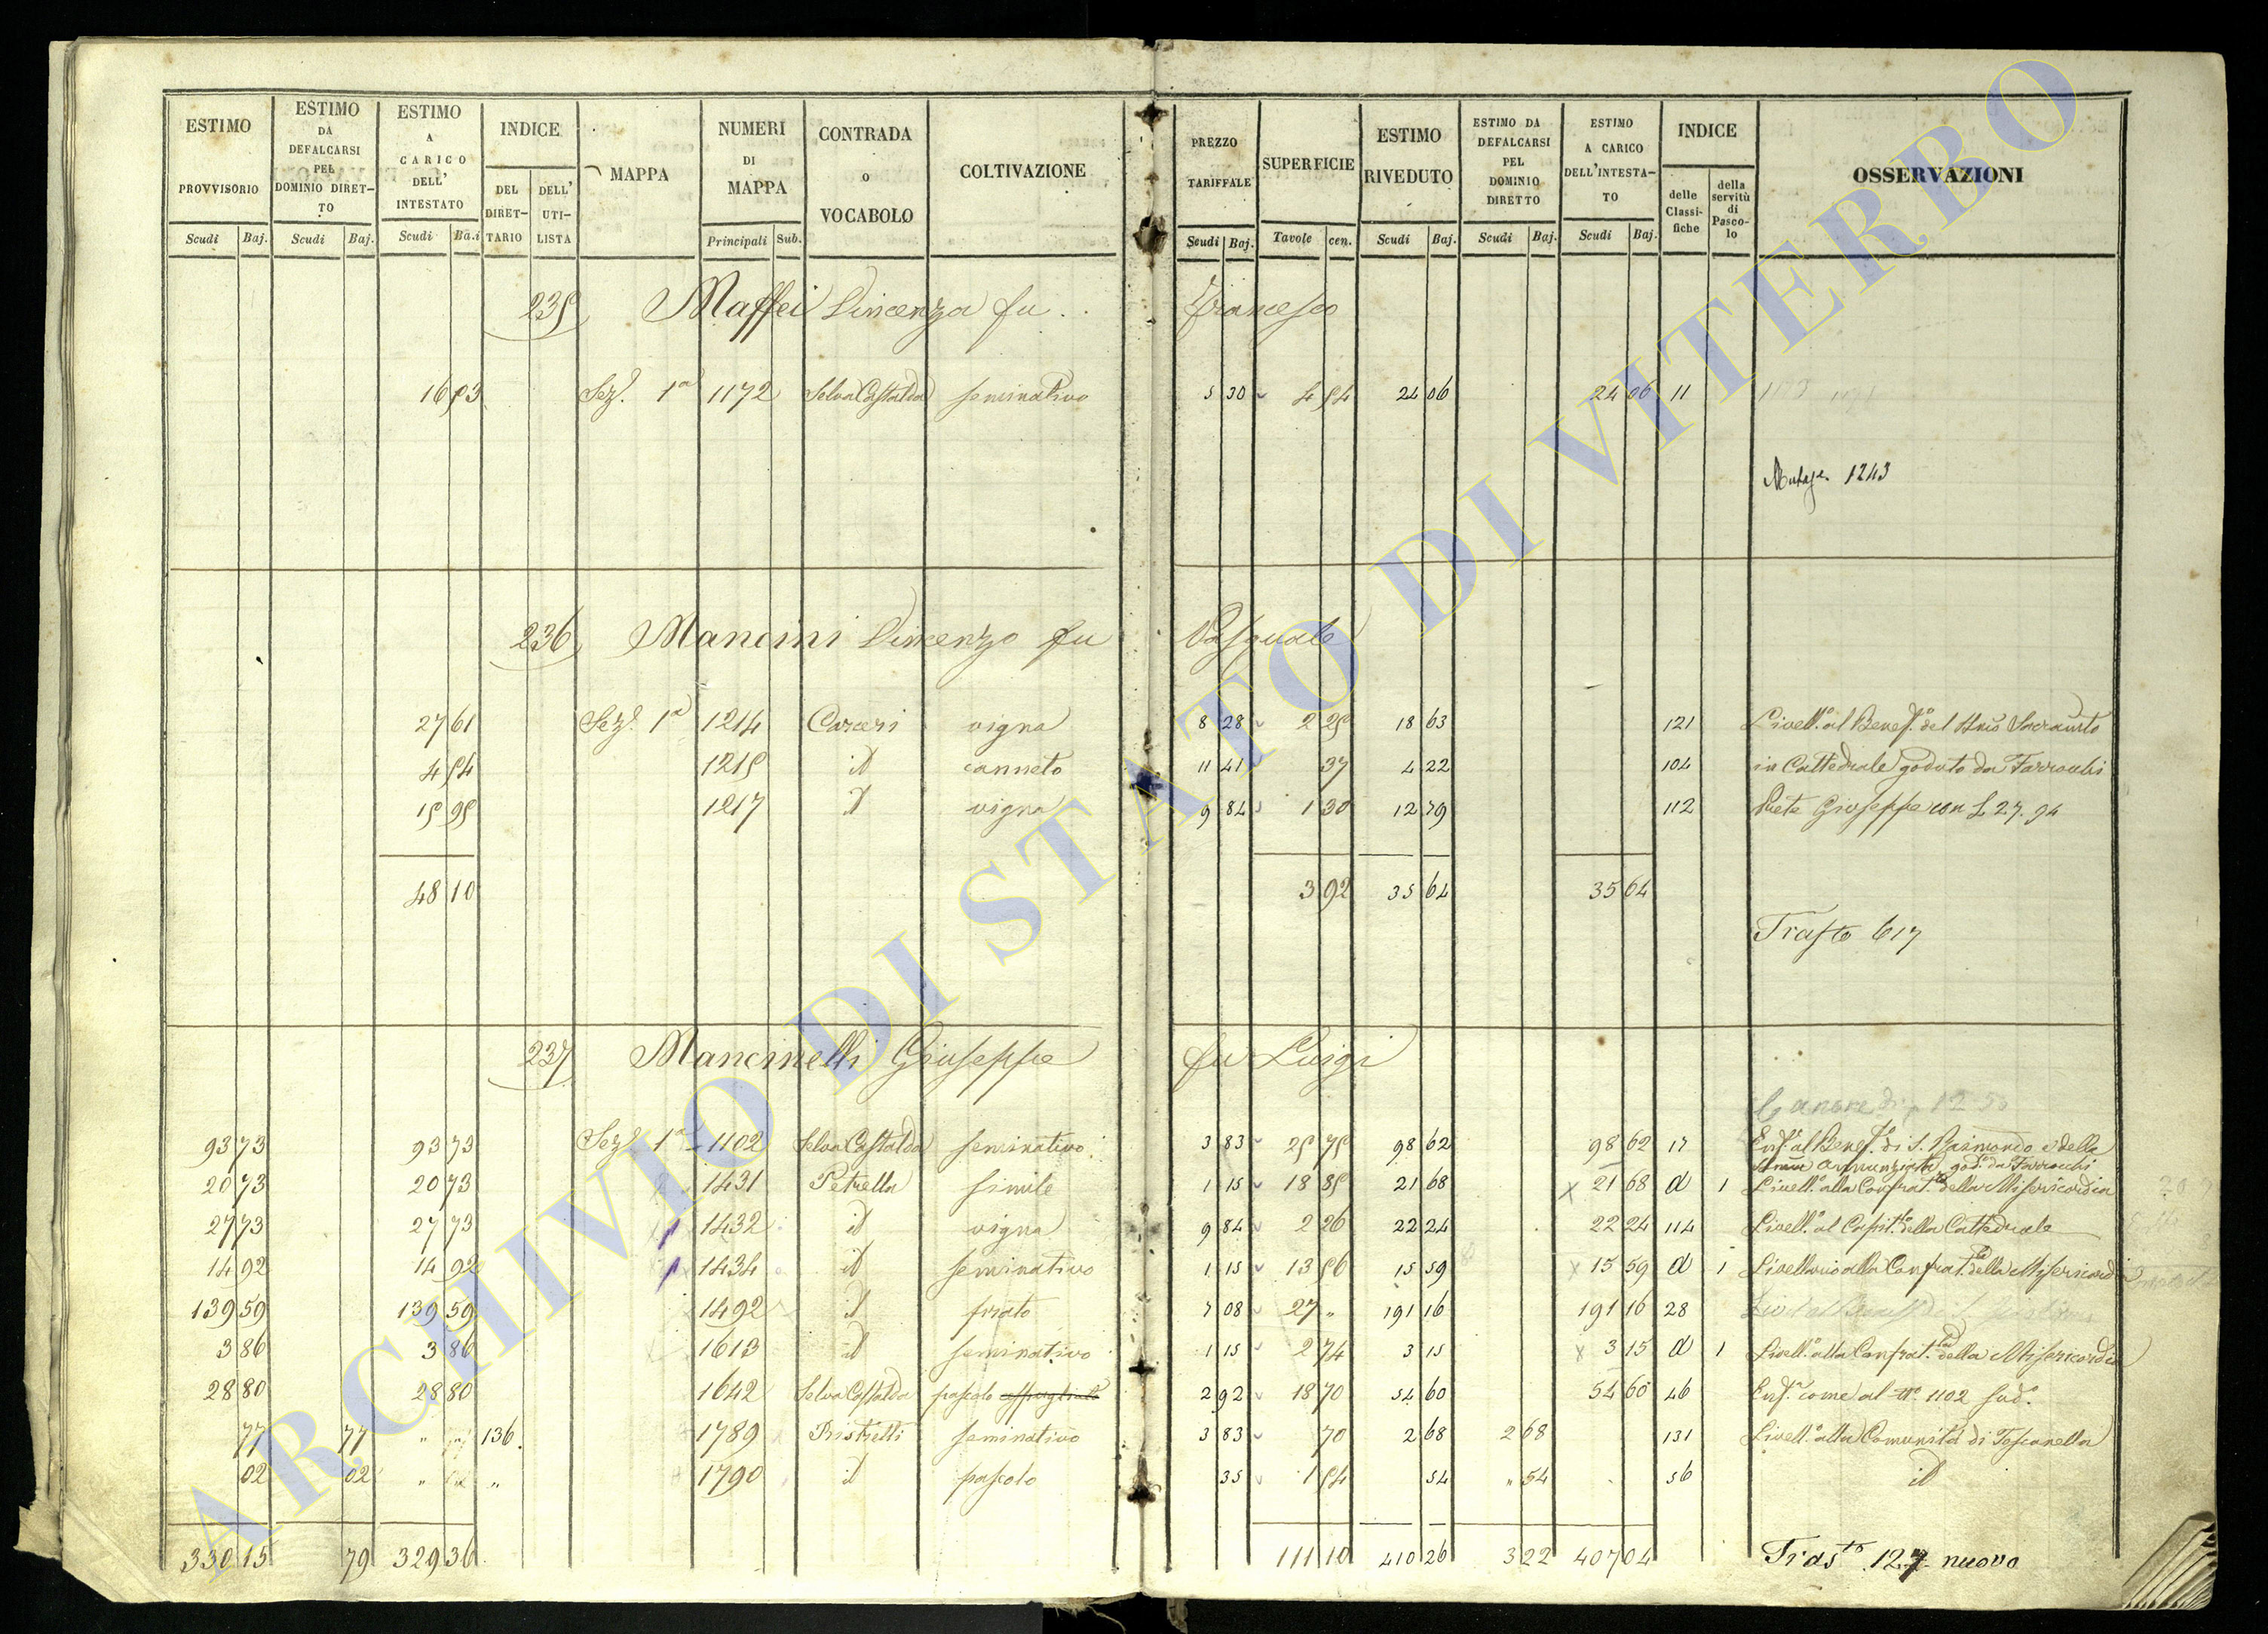 ESTIMO PROVVISORIO Scudi Baj.
ESTIMO DA DEFALCARSI PEL DOMINIO DIRETTO Scudi Baj.
ESTIMO A CARICO DELL' INTESTATO Scudi Ba.i
INDICE DEL DIRETTARIO DELL' UTILISTA
MAPPA
NUMERI DI MAPPA Principali Sub.
CONTRADA O VOCABOLO
COLTIVAZIONE
PREZZO TARIFFALE Scudi Baj.
SUPERFICIE Tavole cen.
ESTIMO RIVEDUTO Scudi Baj.
ESTIMO DA DEFALCARSI PEL DOMINIO DIRETTO Scudi Baj.
ESTIMO A CARICO DELL'INTESTATO Scudi Baj.
INDICE delle Classifiche della servitù di Pascolo
OSSERVAZIONI
235 Maffei Vincenza fu Francesco
16 53 Sez. 1a 1172 Selva Castalda seminativo 5 30 4 54 24 06 24 06 11
1243
236 Mancini Vincenzo fu Pasquale
27 61 Sez. 1a 1214 Carceri vigna 8 28 2 25 18 63 121 Livell.o al Benef.o del SSmo Sacramto
4 54 1215 id canneto 11 41 37 4 22 104 in Cattedrale goduto da
15 95 1217 id vigna 9 84 1 30 12 79 112 Giuseppe con L 27. 94
48 10 3 92 35 64 35 64
Trasto 617
237 Mancinelli Giuseppe fu Luigi
Canone di 12 50
93 73 93 73 Sez. 1a 1102 Selva Castalda seminativo 3 83 25 75 98 62 98 62 17 Enf.a al Benef.o di S. Raimondo e della
Annunziata god.o da
20 73 20 73 1431 Petrella simile 1 15 18 85 21 68 x 21 68 d 1 Livell.o alla Confrat.ta della Misericordia
27 73 27 73 1432 id vigna 9 84 2 26 22 24 22 24 114 Livell.o al Capit.lo della Cattedrale
14 92 14 92 1434 id seminativo 1 15 13 56 15 59 x 15 59 d 1 Livellario alla Confrat.ta della Misericordia
139 59 139 59 1492 id prato 7 08 27 " 191 16 191 16 28
3 86 3 86 1613 id seminativo 1 15 2 74 3 15 x 3 15 d 1 Livell.o alla Confrat.ta della Misericordia
28 80 28 80 1642 Selva Castalda pascolo 2 92 18 70 54 60 54 60 46 Enf.a come al N.o 1102 sud.o
77 77 " 136. 1789 Ristretti seminativo 3 83 70 2 68 2 68 131 Livell.o alla Comunità di Toscanella
02 02 " " 1790 id pascolo 35 1 54 54 " 54 56 id
330 15 79 329 36 111 10 410 26 3 22 407 04 Trasto 127 nuovo
ARCHIVIO DI STATO DI VITERBO